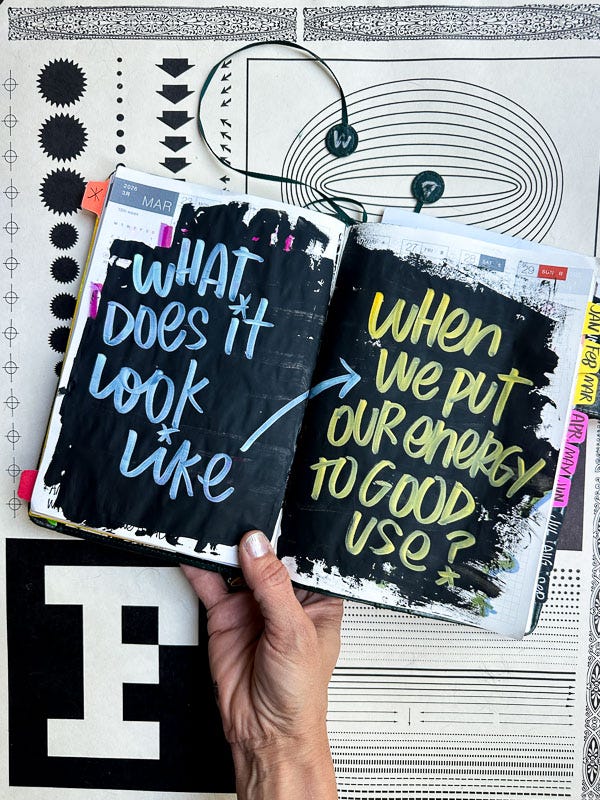 W
2026
3月
MAR
27 FRI
28 SAT
29 SUN
WHAT
DOES it
LOOK
LiKE
WHEN
WE PUT
OUR ENERGY
TO GOOD
USE?
JAN FEB MAR
APR MAY JUN
F